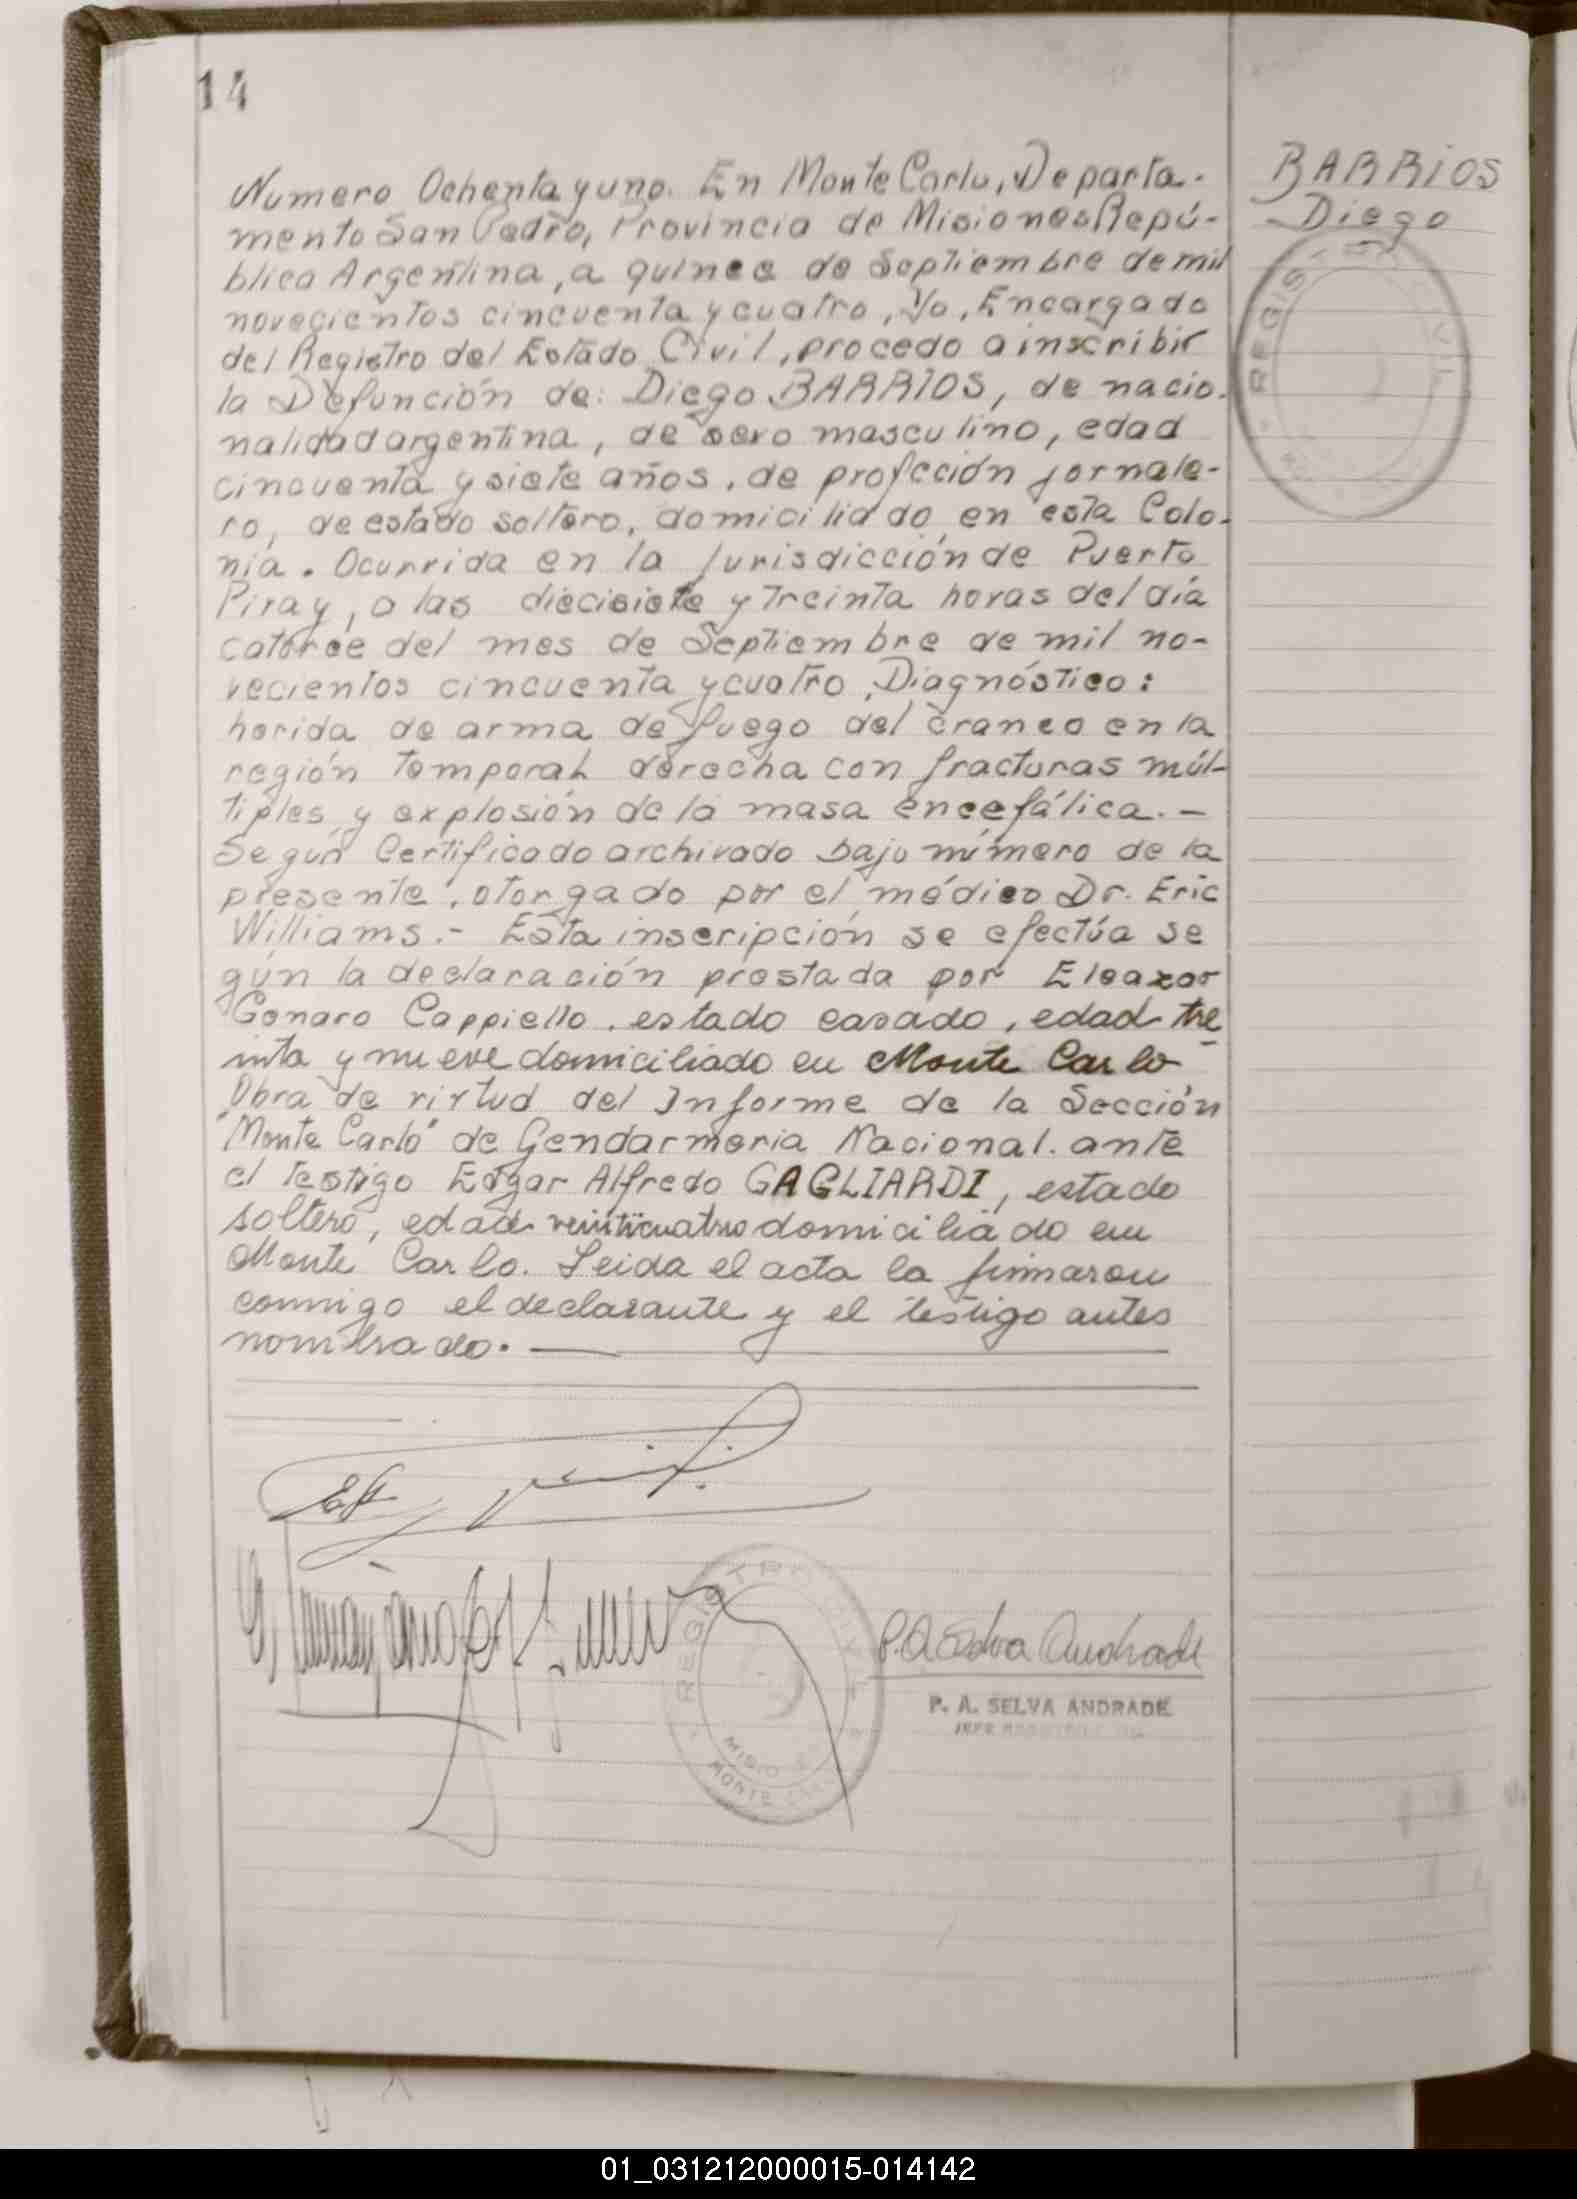 14
BARRIOS
Diego
Numero Ochenta y uno. En Monte Carlo, Departa-
mento San Pedro, Provincia de Misiones Repú-
blica Argentina, a quince de Septiembre de mil
novecientos cincuenta y cuatro, Yo, Encargado
del Registro del Estado Civil, procedo a inscribir
la Defunción de: Diego BARRIOS, de nacio-
nalidad argentina, de sexo masculino, edad
cincuenta y siete años, de profeción jornale-
ro, de estado soltero, domiciliado en esta Colo-
nia. Ocurrida en la Jurisdicción de Puerto
Piray, a las diecisiete y treinta horas del día
catorce del mes de Septiembre de mil no-
vecientos cincuenta y cuatro, Diagnóstico:
herida de arma de fuego del craneo en la
región temporal derecha con fracturas múl-
tiples y explosión de la masa encefálica. -
Según Certificado archivado bajo número de la
presente, otorgado por el médico Dr. Eric
Williams.- Esta inscripción se efectúa se
gún la declaración prestada por Eleazar
Genaro Cappiello, estado casado, edad tre
inta y nueve domiciliado en Monte Carlo
Obra de virtud del Informe de la Sección
"Monte Carlo" de Gendarmeria Nacional. ante
el testigo Edgar Alfredo GAGLIARDI, estado
soltero, edad veinticuatro domiciliado en
Monte Carlo. Leida el acta la firmaron
conmigo el declarante y el testigo antes
nombrado.
REGISTRO CIVIL
MISIO
MONTE
P. A. Selva Andrade
P. A. SELVA ANDRADE
01_031212000015-014142